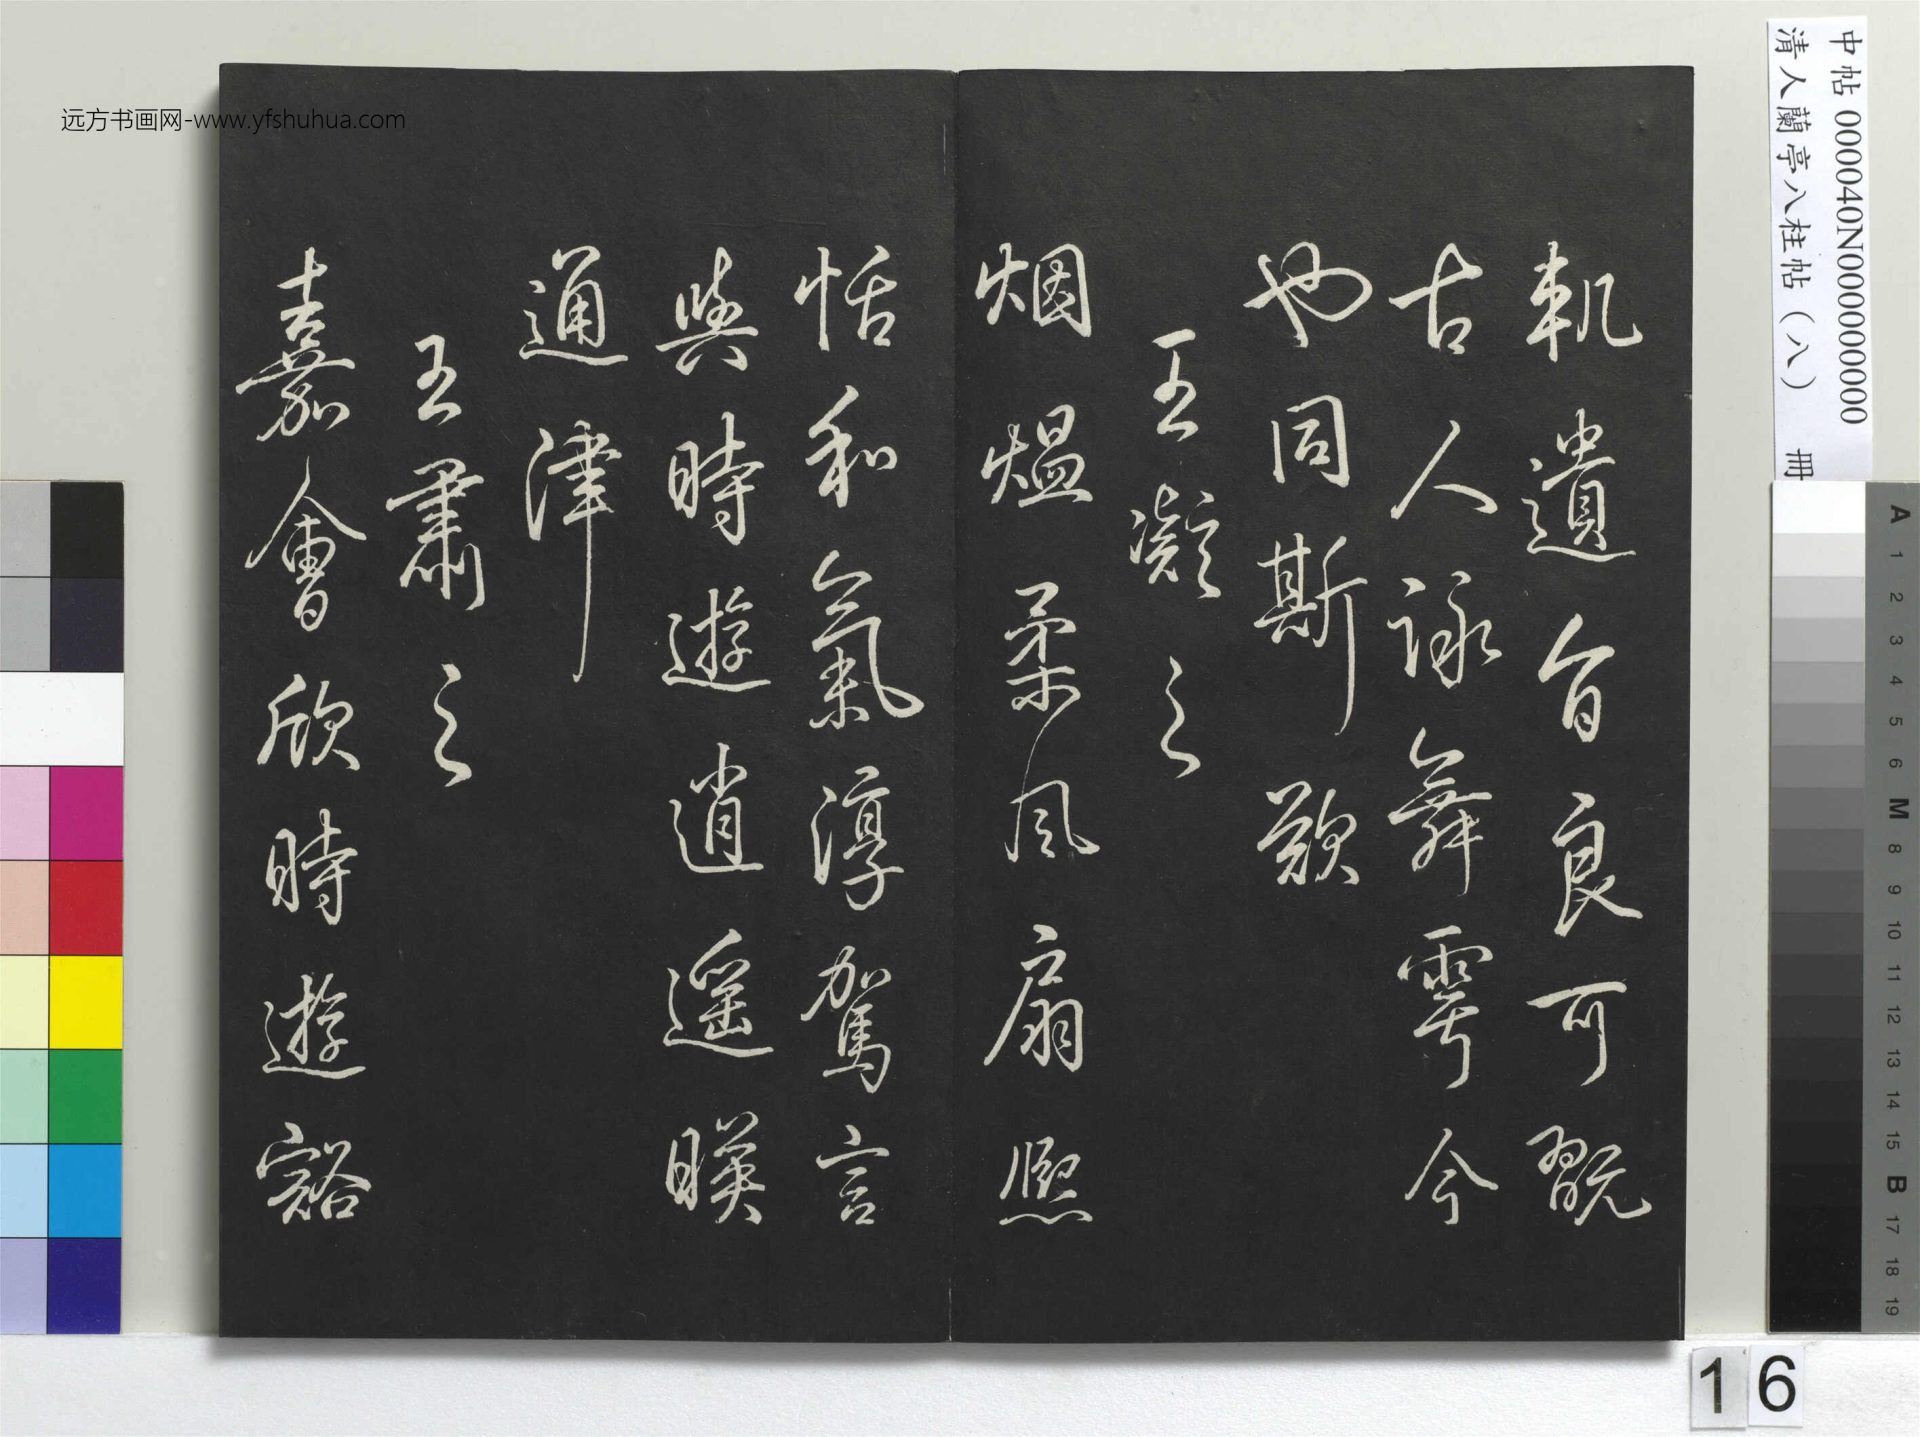 軌遺自良可翫
古人詠舞雩今
也同斯歎
王凝之
烟熅柔風扇熈
恬和氣淳駕言
與時遊逍遥暎
通津
王肅之
嘉會欣時遊豁
远方书画网-www.yfshuhua.com
中帖 00040N000000000
清人蘭亭八柱帖（八） 冊
A 1 2 3 4 5 6 M 8 9 10 11 12 13 14 15 B 17 18 19
16